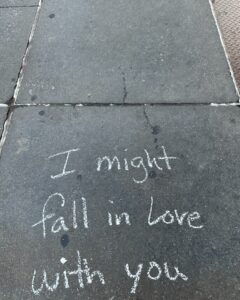 I might
fall in Love
with you